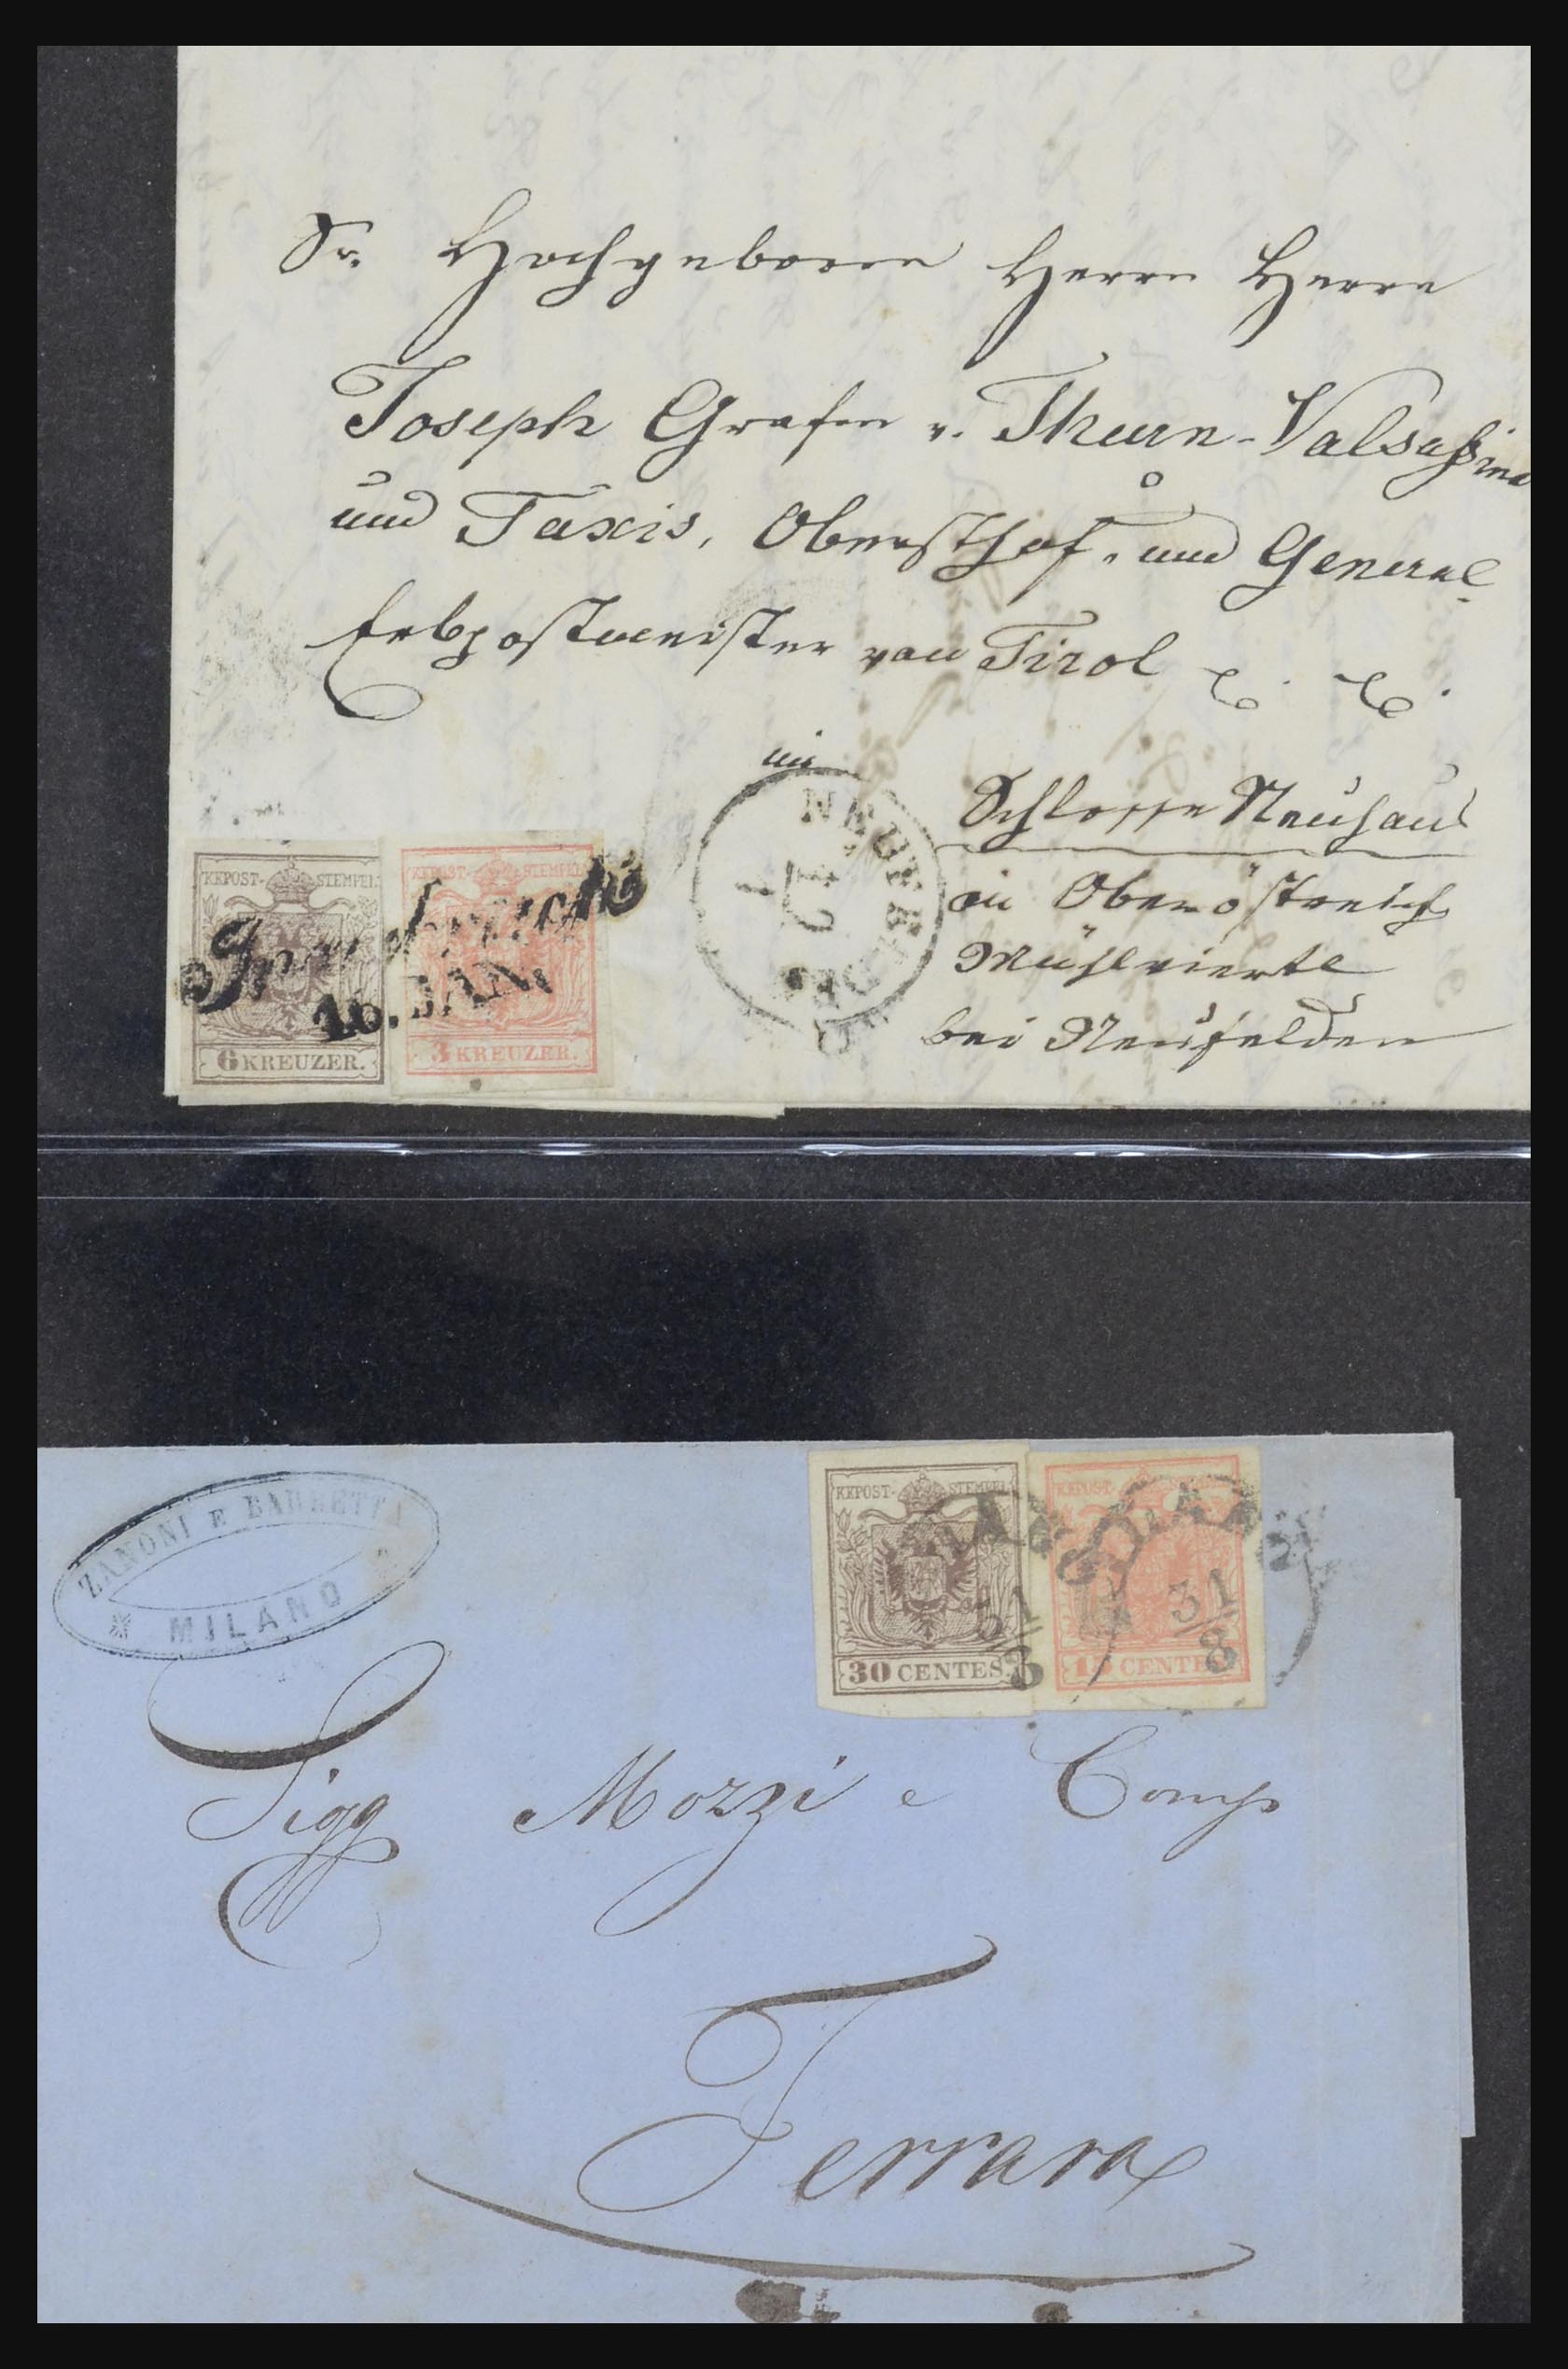 Sr. Hochgeboren Herrn Herrn
Joseph Grafen v. Thurn-Valsaßina
und Taxis, Obersthof- und General
Erbpostmeister von Tirol
im
Schlosse Neuhaus
in Oberöstreich
Mühlviertl
bei Neufelden
KKPOST-STEMPEL
6 KREUZER.
KKPOST-STEMPEL
3 KREUZER.
Innsbruck
16. JAN.
ZANONI E BARBETTA
MILANO
KKPOST-STEMPEL
30 CENTES.
KKPOST-STEMPEL
15 CENTES.
MILANO
31/8
31/8
Sigg Mozzi e Comp
Ferrara